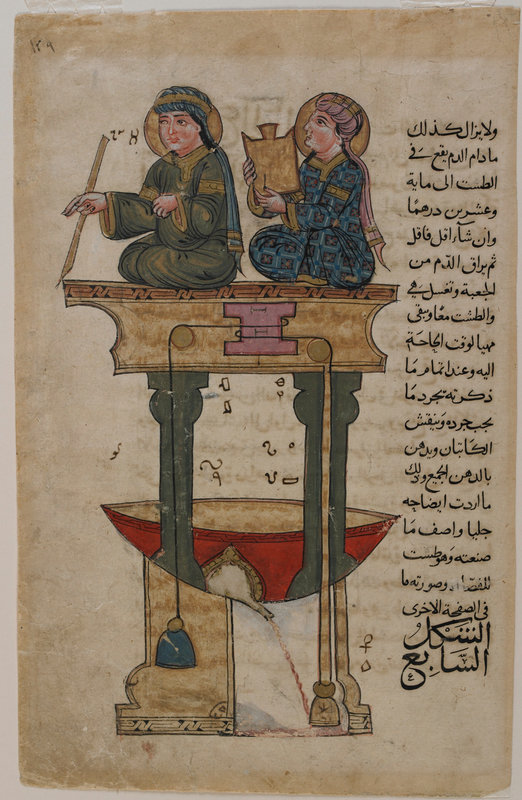 ١٢٩
ولايزال كذلك
مادام الدم يقع في
الطشت الى ماية
وعشرين درهما
وان شآء اقل فاقل
ثم يراق الدم من
الجعبة وتغسل هي
والطشت معا ويبقى
مهيا لوقت الحاجة
اليه وعند اتمام ما
ذكرته يجرد ما
يجب جرده وينقش
الكاتبان ويدهن
بالدهن الجميع وذلك
ما اردت ايضاحه
جليا واصف ما
صنعته وهو طست
للفصاد وصورته ما
في الصفحة الاخرى
الشكل
السابع